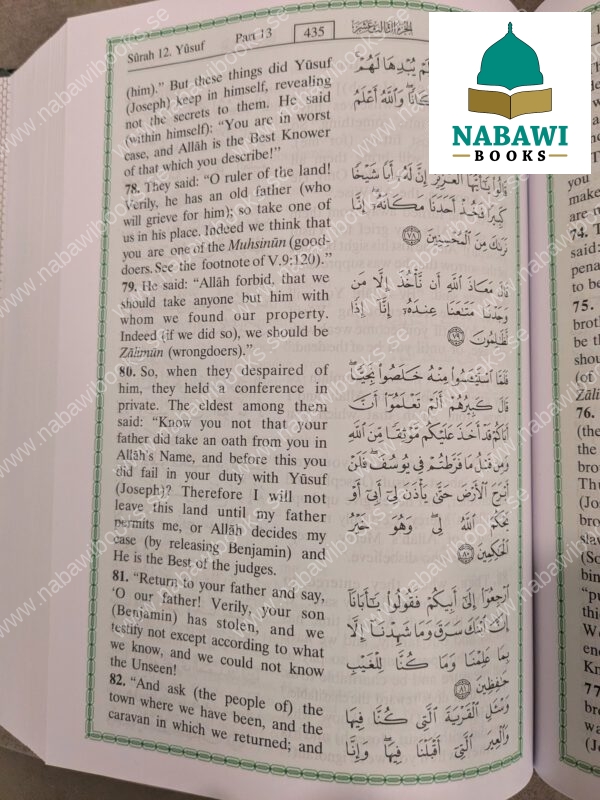 Sûrah 12. Yûsuf
Part 13
435
الجزء الثالث عشر
NABAWI
BOOKS
(him)." But these things did Yûsuf
(Joseph) keep in himself, revealing
not the secrets to them. He said
(within himself): "You are in worst
case, and Allâh is the Best Knower
of that which you describe!"
78. They said: "O ruler of the land!
Verily, he has an old father (who
will grieve for him); so take one of
us in his place. Indeed we think that
you are one of the Muhsinûn (good-
doers. See the footnote of V.9:120)."
79. He said: "Allâh forbid, that we
should take anyone but him with
whom we found our property.
Indeed (if we did so), we should be
Zâlimûn (wrongdoers)."
80. So, when they despaired of
him, they held a conference in
private. The eldest among them
said: "Know you not that your
father did take an oath from you in
Allâh's Name, and before this you
did fail in your duty with Yûsuf
(Joseph)? Therefore I will not
leave this land until my father
permits me, or Allâh decides my
case (by releasing Benjamin) and
He is the Best of the judges.
81. "Return to your father and say,
'O our father! Verily, your son
(Benjamin) has stolen, and we
testify not except according to what
we know, and we could not know
the Unseen!
82. "And ask (the people of) the
town where we have been, and the
caravan in which we returned; and
يُبْدِهَا لَهُمْ
وَاللَّهُ أَعْلَمُ
قَالُوا يَٰٓأَيُّهَا ٱلْعَزِيزُ إِنَّ لَهُۥٓ أَبًا شَيْخًا
كَبِيرًا فَخُذْ أَحَدَنَا مَكَانَهُۥٓ إِنَّا
نَرَىٰكَ مِنَ ٱلْمُحْسِنِينَ ٧٨
قَالَ مَعَاذَ ٱللَّهِ أَن نَّأْخُذَ إِلَّا مَن
وَجَدْنَا مَتَٰعَنَا عِندَهُۥٓ إِنَّآ إِذًا
لَّظَٰلِمُونَ ٧٩
فَلَمَّا ٱسْتَيْـَٔسُوا۟ مِنْهُ خَلَصُوا۟ نَجِيًّا
قَالَ كَبِيرُهُمْ أَلَمْ تَعْلَمُوٓا۟ أَنَّ
أَبَاكُمْ قَدْ أَخَذَ عَلَيْكُم مَّوْثِقًا مِّنَ ٱللَّهِ
وَمِن قَبْلُ مَا فَرَّطتُمْ فِى يُوسُفَ فَلَنْ
أَبْرَحَ ٱلْأَرْضَ حَتَّىٰ يَأْذَنَ لِىٓ أَبِىٓ أَوْ
يَحْكُمَ ٱللَّهُ لِى وَهُوَ خَيْرُ
ٱلْحَٰكِمِينَ ٨٠
ٱرْجِعُوٓا۟ إِلَىٰٓ أَبِيكُمْ فَقُولُوا۟ يَٰٓأَبَانَآ
إِنَّ ٱبْنَكَ سَرَقَ وَمَا شَهِدْنَآ إِلَّا
بِمَا عَلِمْنَا وَمَا كُنَّا لِلْغَيْبِ
حَٰفِظِينَ ٨١
وَسْـَٔلِ ٱلْقَرْيَةَ ٱلَّتِى كُنَّا فِيهَا
وَٱلْعِيرَ ٱلَّتِىٓ أَقْبَلْنَا فِيهَا وَإِنَّا
you
make
are n
74. T
said:
pena
to be
75.
brot
be th
shou
(of
Zâli
76.
(the
the
bro
Thu
(Jos
bro
slav
(So
bin
"pu
thi
We
en
Kn
77
bro
wa
(Jo
www.nabawibooks.se